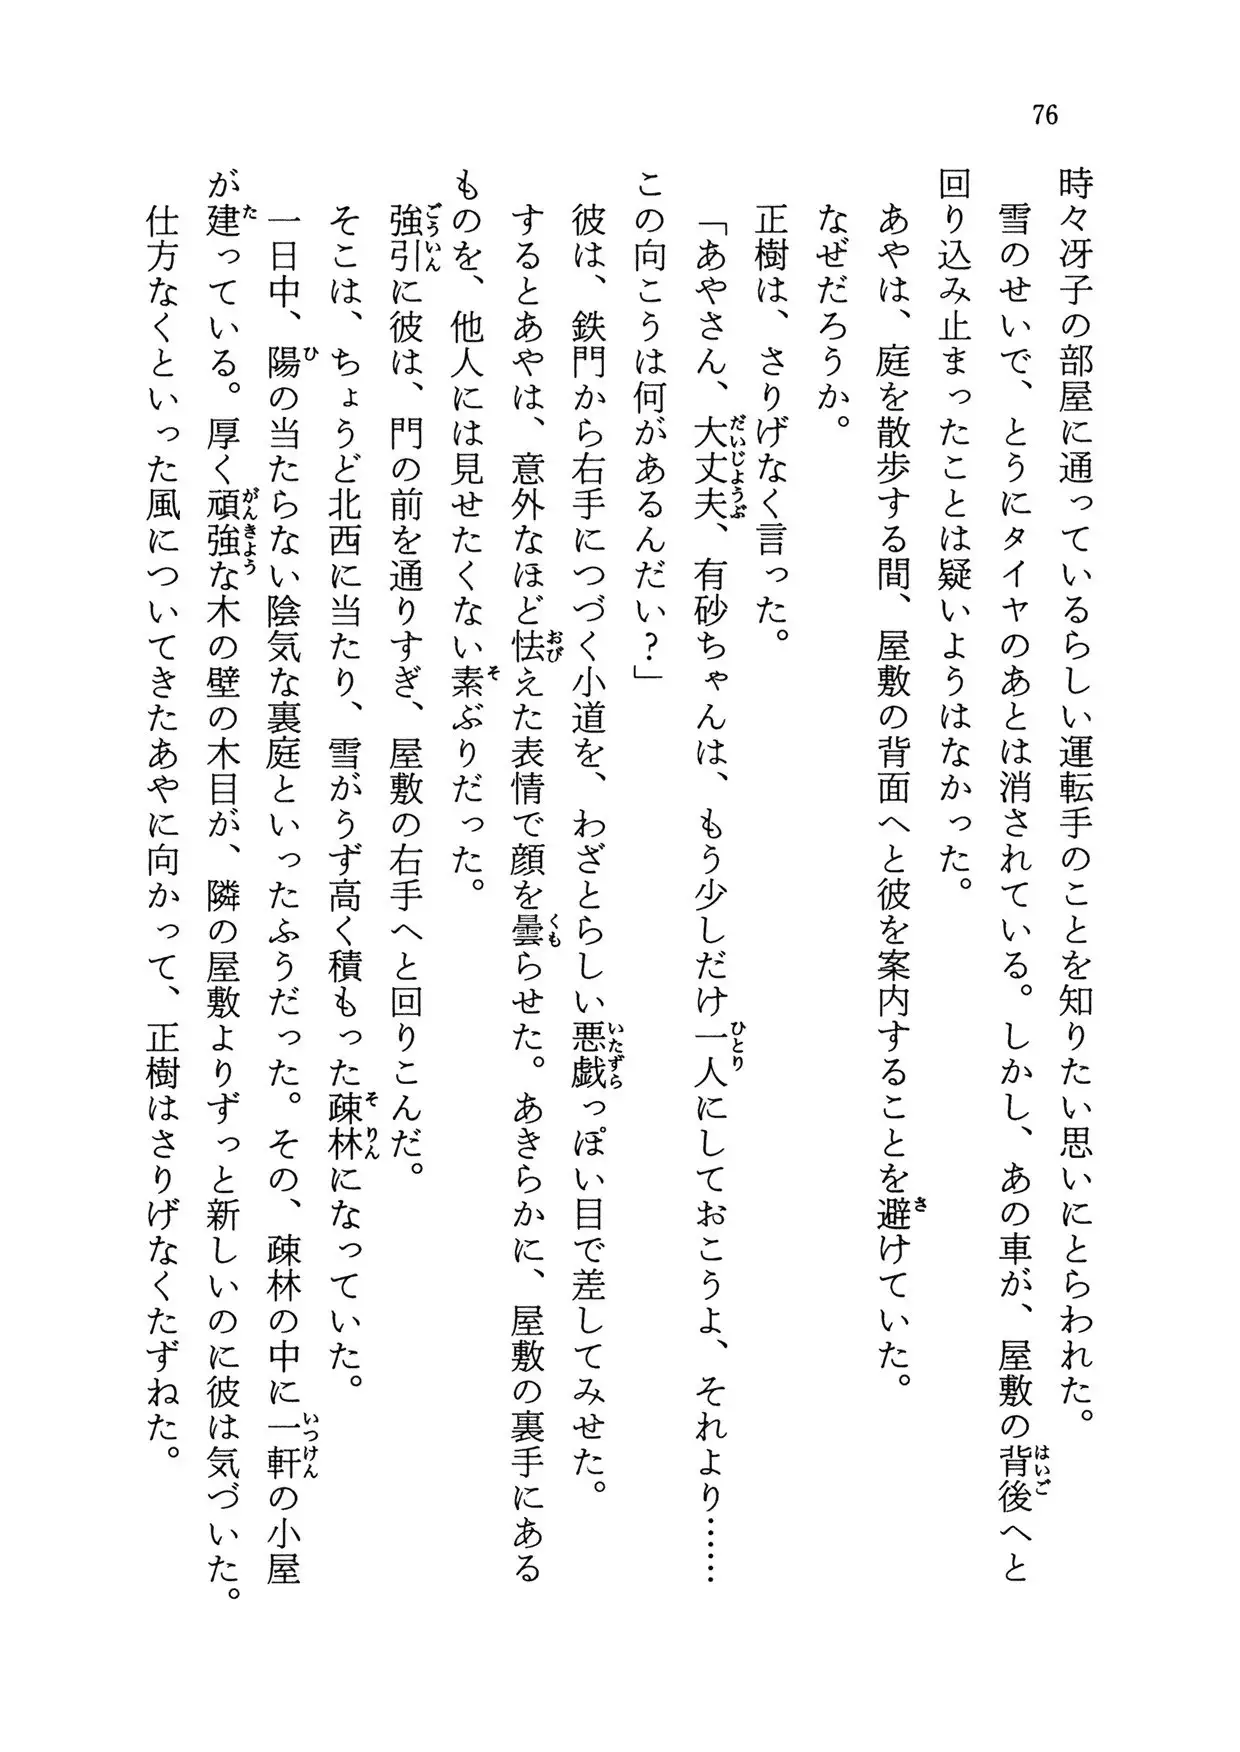 76
時々冴子の部屋に通っているらしい運転手のことを知りたい思いにとらわれた。
雪のせいで、とうにタイヤのあとは消されている。しかし、あの車が、屋敷の背後へと
回り込み止まったことは疑いようはなかった。
あやは、庭を散歩する間、屋敷の背面へと彼を案内することを避けていた。
なぜだろうか。
正樹は、さりげなく言った。
「あやさん、大丈夫、有砂ちゃんは、もう少しだけ一人にしておこうよ、それより……
この向こうは何があるんだい？」
彼は、鉄門から右手につづく小道を、わざとらしい悪戯っぽい目で差してみせた。
するとあやは、意外なほど怯えた表情で顔を曇らせた。あきらかに、屋敷の裏手にある
ものを、他人には見せたくない素ぶりだった。
強引に彼は、門の前を通りすぎ、屋敷の右手へと回りこんだ。
そこは、ちょうど北西に当たり、雪がうず高く積もった疎林になっていた。
一日中、陽の当たらない陰気な裏庭といったふうだった。その、疎林の中に一軒の小屋
が建っている。厚く頑強な木の壁の木目が、隣の屋敷よりずっと新しいのに彼は気づいた。
仕方なくといった風についてきたあやに向かって、正樹はさりげなくたずねた。